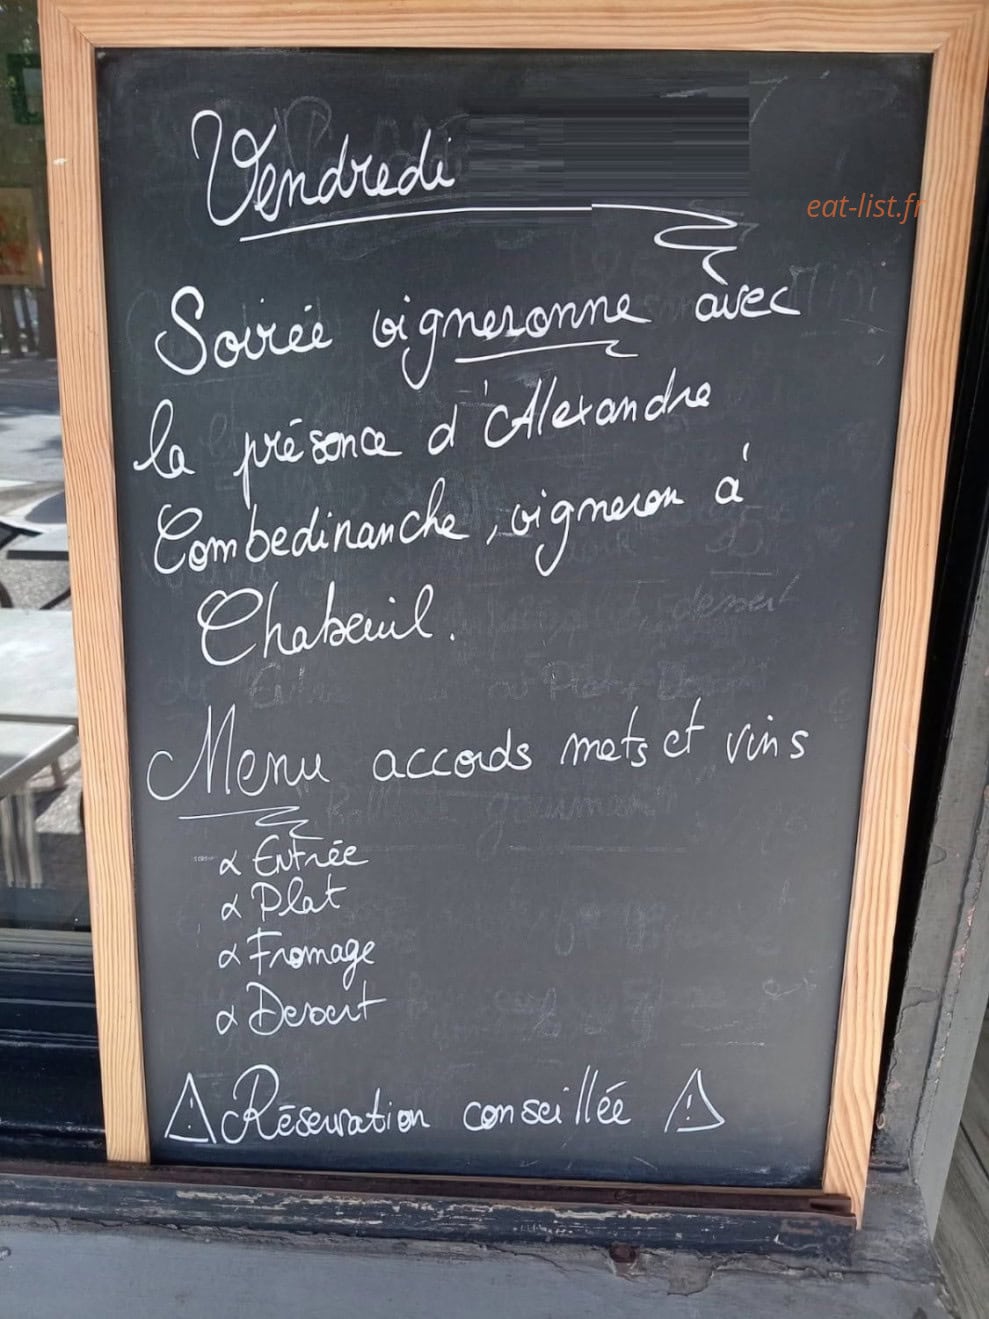 Vendredi
eat-list.fr
Soirée vigneronne avec
la présence d'Alexandre
Combedimanche, vigneron à
Chabeuil.
Menu accords mets et vins
α Entrée
α Plat
α Fromage
α Dessert
⚠ Réservation conseillée ⚠